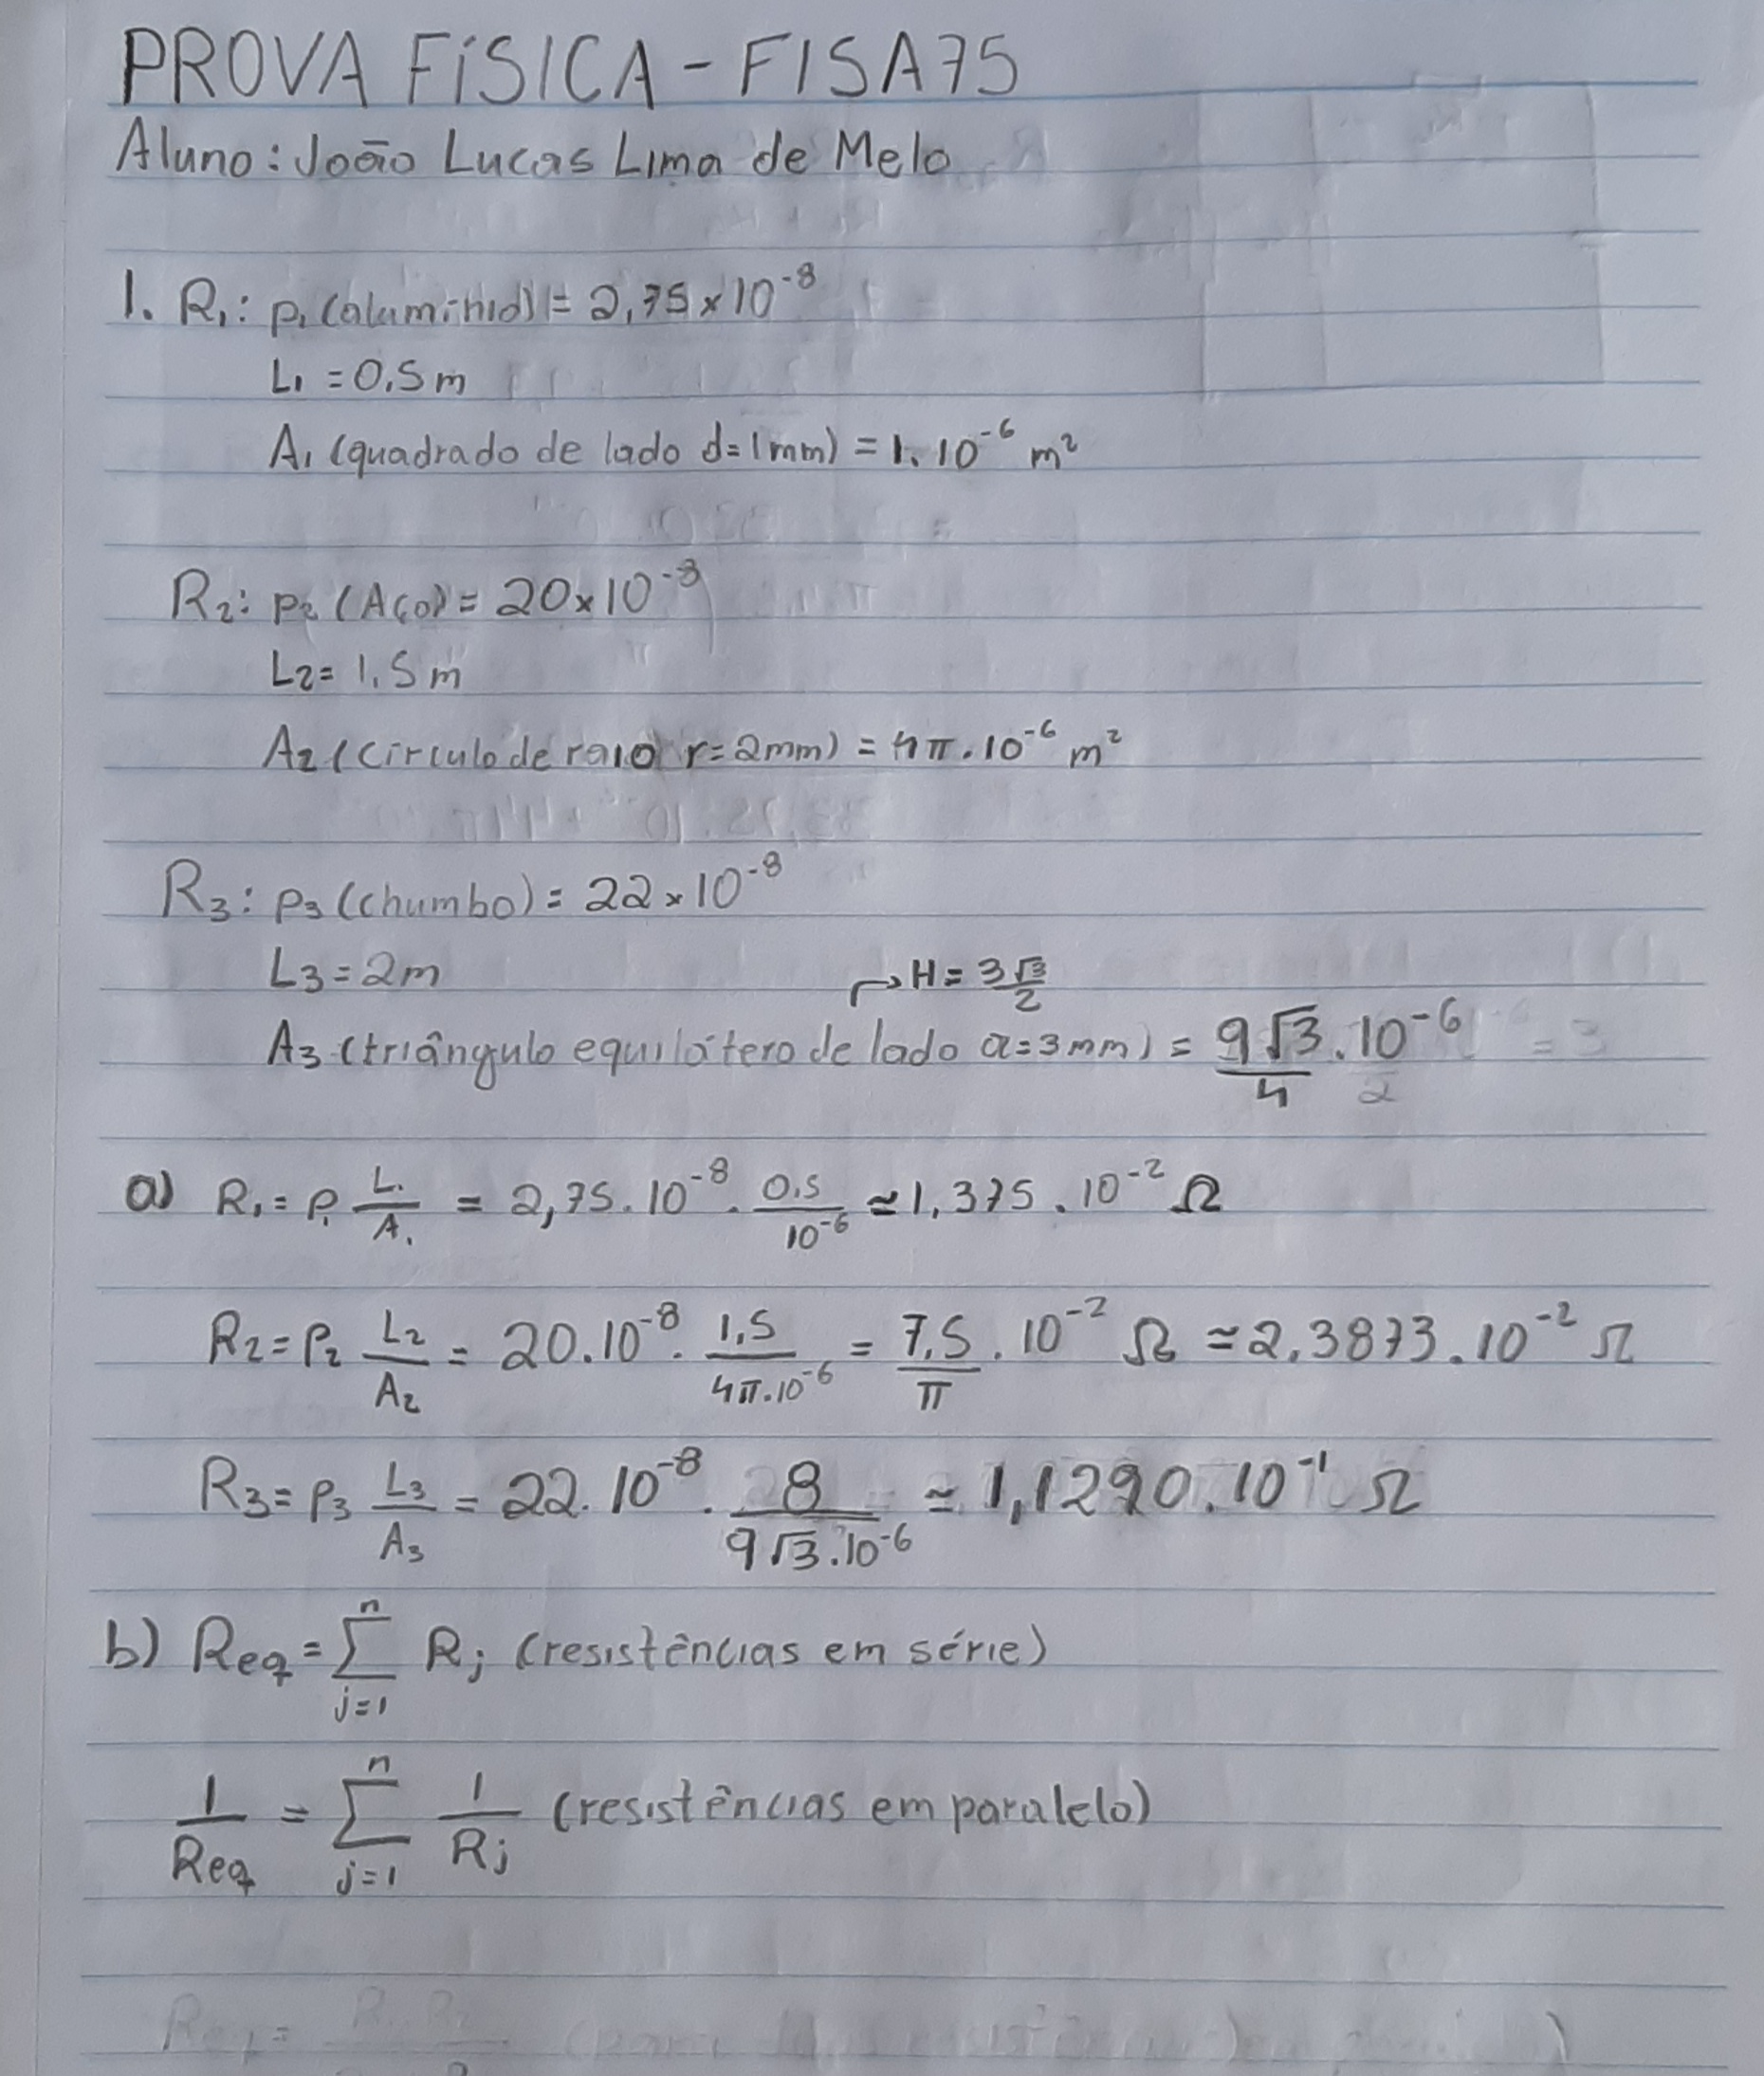 PROVA FÍSICA - FISA75
Aluno: João Lucas Lima de Melo
1. R₁: p₁ (alumínio) = 2,75 x 10⁻⁸
L₁ = 0,5 m
A₁ (quadrado de lado d=1mm) = 1.10⁻⁶ m²
R₂: p₂ (Aço) = 20 x 10⁻⁸
L₂ = 1,5 m
A₂ (círculo de raio r=2mm) = 4π.10⁻⁶ m²
R₃: p₃ (chumbo) = 22 x 10⁻⁸
L₃ = 2m
→ H = 3√3/2
A₃ (triângulo equilátero de lado a=3mm) = 9√3/4 . 10⁻⁶
a) R₁ = p₁ L₁/A₁ = 2,75.10⁻⁸ . 0,5/10⁻⁶ ≃ 1,375 . 10⁻² Ω
R₂ = p₂ L₂/A₂ = 20.10⁻⁸ . 1,5/4π.10⁻⁶ = 7,5/π . 10⁻² Ω ≃ 2,3873.10⁻² Ω
R₃ = p₃ L₃/A₃ = 22.10⁻⁸ . 8/9√3.10⁻⁶ ≃ 1,1290.10⁻¹ Ω
b) Req = Σⁿj=1 Rj (resistências em série)
1/Req = Σⁿj=1 1/Rj (resistências em paralelo)